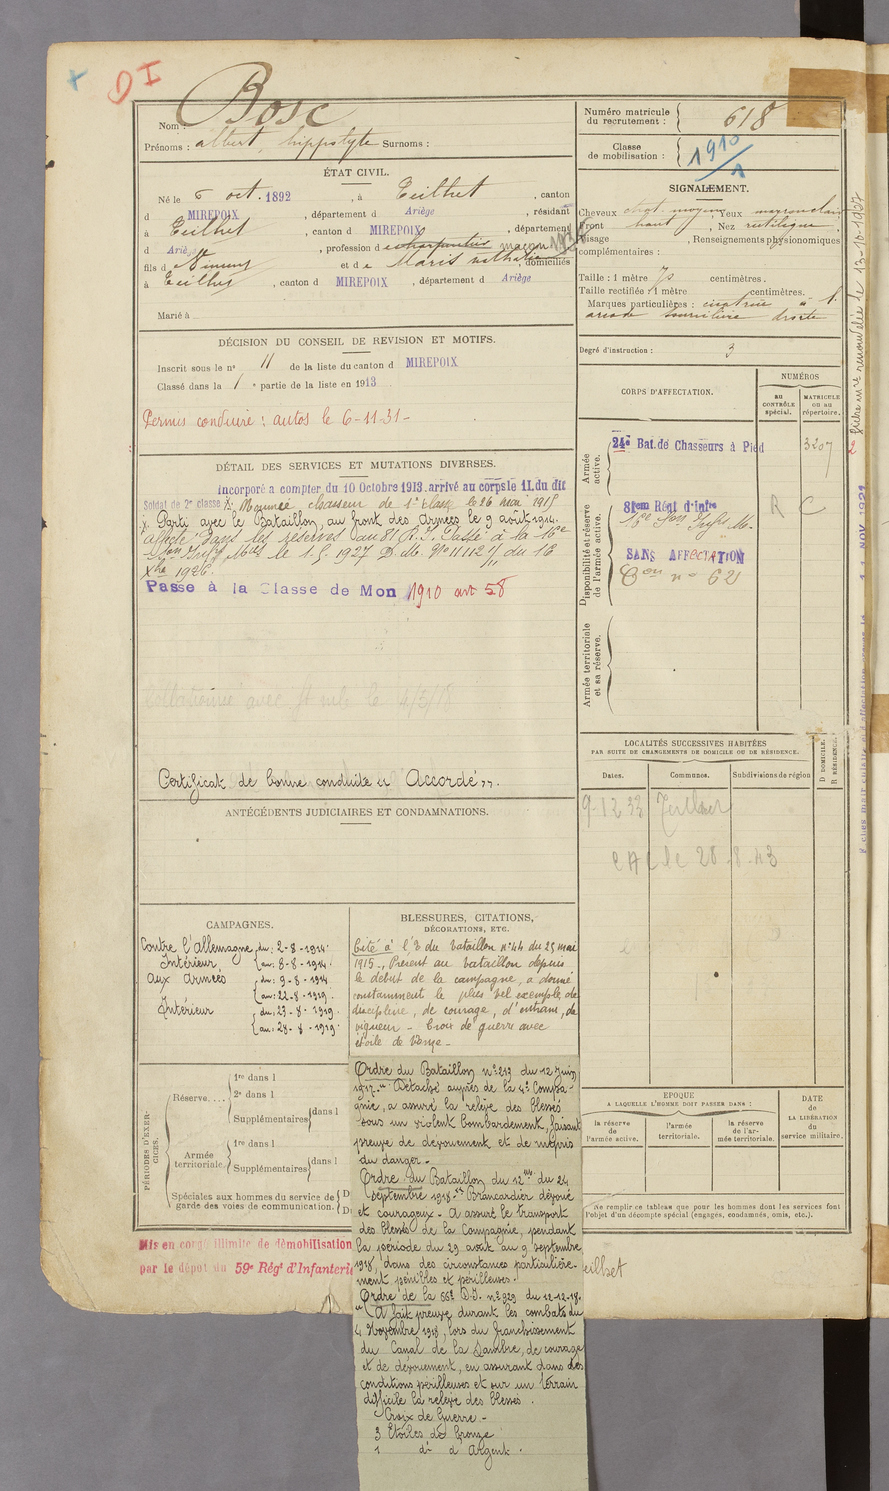 D I
Nom : Bosc
Prénoms : albert, hippolyte Surnoms :
Numéro matricule
du recrutement : 618
Classe
de mobilisation : 1910/1
ÉTAT CIVIL.
Né le 6 oct. 1892, à Teilhet, canton
d MIREPOIX, département d Ariège, résidant
à Teilhet, canton d MIREPOIX, département
d Ariège, profession de charpentier maçon
fils d et de Maris nathalie, domiciliés
à Teilhet, canton d MIREPOIX, départemt d Ariège
Marié à
SIGNALEMENT.
Cheveux chat. moyen, Yeux marron clair
Front haut, Nez rectiligne,
Visage , Renseignements physionomiques
complémentaires :
Taille : 1 mètre 70 centimètres.
Taille rectifiée : 1 mètre centimètres.
Marques particulières : cicatrice à l'
arcade sourcilière droite
Degré d'instruction : 3
DÉCISION DU CONSEIL DE REVISION ET MOTIFS.
Inscrit sous le n° 11 de la liste du canton d MIREPOIX
Classé dans la 1e partie de la liste en 1913
Permis conduire : autos le 6-11-31-
CORPS D'AFFECTATION.
NUMÉROS
AU CONTRÔLE spécial.
MATRICULE ou au répertoire.
Armée active.
24e Bat. de Chasseurs à Pied
3207
Disponibilité et réserve de l'armée active.
81em Régt d'Infie
16e Son Infrs M.
R C
SANS AFFECTATION
Con n° 621
Armée territoriale et sa réserve.
DÉTAIL DES SERVICES ET MUTATIONS DIVERSES.
incorporé a compter du 10 Octobre 1913. arrivé au corps le 11. du dit
Soldat de 2e classe X. Nommé chasseur de 1e classe le 26 mai 1915
X. Parti avec le Bataillon, au front des Armées le 9 août 1914.
affecté dans les réserves au 81 R.I. Passé à la 16e
Son Infrs Mres le 1. 1927 D. M. N° 11112 du 16
Xbre 1926.
Passé à la Classe de Mon 1910 art 58
Collationné avec le 4/3/18
Certificat de bonne conduite " Accordé ,, .
LOCALITÉS SUCCESSIVES HABITÉES
PAR SUITE DE CHANGEMENTS DE DOMICILE OU DE RÉSIDENCE.
Dates.
Communes.
Subdivisions de région
D DOMICILE.
R RÉSIDENCE.
9-12 33 Teilhet
le 28-8-43
ANTÉCÉDENTS JUDICIAIRES ET CONDAMNATIONS.
CAMPAGNES.
Contre l'allemagne du : 2-8-1914.
Intérieur au : 8-8-1914.
aux armées du : 9-8-1914
au : 22-8-1919.
Intérieur du : 23-8-1919.
au : 28-8-1919.
BLESSURES, CITATIONS,
DÉCORATIONS, ETC.
Cité à l'O du bataillon n° 44 du 25 mai
1915., Présent au bataillon depuis
le début de la campagne, a donné
constamment le plus bel exemple, de
discipline, de courage, d'entrain, de
vigueur - Croix de guerre avec
étoile de bronze -
Ordre du Bataillon n° 213 du 12 juin
1917. " Détaché auprès de la 4e Compa-
gnie, a assuré la relève des blessés
sous un violent bombardement, faisant
preuve de dévouement et de mépris
du danger.
Ordre du Bataillon du 12me du 24
septembre 1918. " Brancardier dévoué
et courageux - a assuré le transport
des blessés de la Compagnie, pendant
la période du 29 août au 9 septembre
1918, dans des circonstances particulière-
ment pénibles et périlleuses.
Ordre de la 66e D.I. n° 929 du 12-12-18.
" A fait preuve durant les combats du
4 Novembre 1918, lors du franchissement
du Canal de la Sambre, de courage
et de dévouement, en assurant dans des
conditions périlleuses et sur un terrain
difficile la relève des blessés.
Croix de Guerre -
3 Etoiles de bronze
1 d° d'Argent.
PÉRIODES D'EXERCICES.
Réserve....
1re dans l
2e dans l
Supplémentaires dans l
Armée territoriale.
1re dans l
Supplémentaires dans l
Spéciales aux hommes du service de
garde des voies de communication.
EPOQUE
A LAQUELLE L'HOMME DOIT PASSER DANS :
la réserve de l'armée active.
l'armée territoriale.
la réserve de l'armée territoriale.
DATE de LA LIBÉRATION du service militaire.
Ne remplir ce tableau que pour les hommes dont les services font
l'objet d'un décompte spécial (engagés, condamnés, omis, etc.).
Mis en congé illimité de démobilisation
par le dépôt du 59e Régt d'Infanterie
eilhet
2 fiche mre renouvelée le 13-10-1927
11 NOV 1921